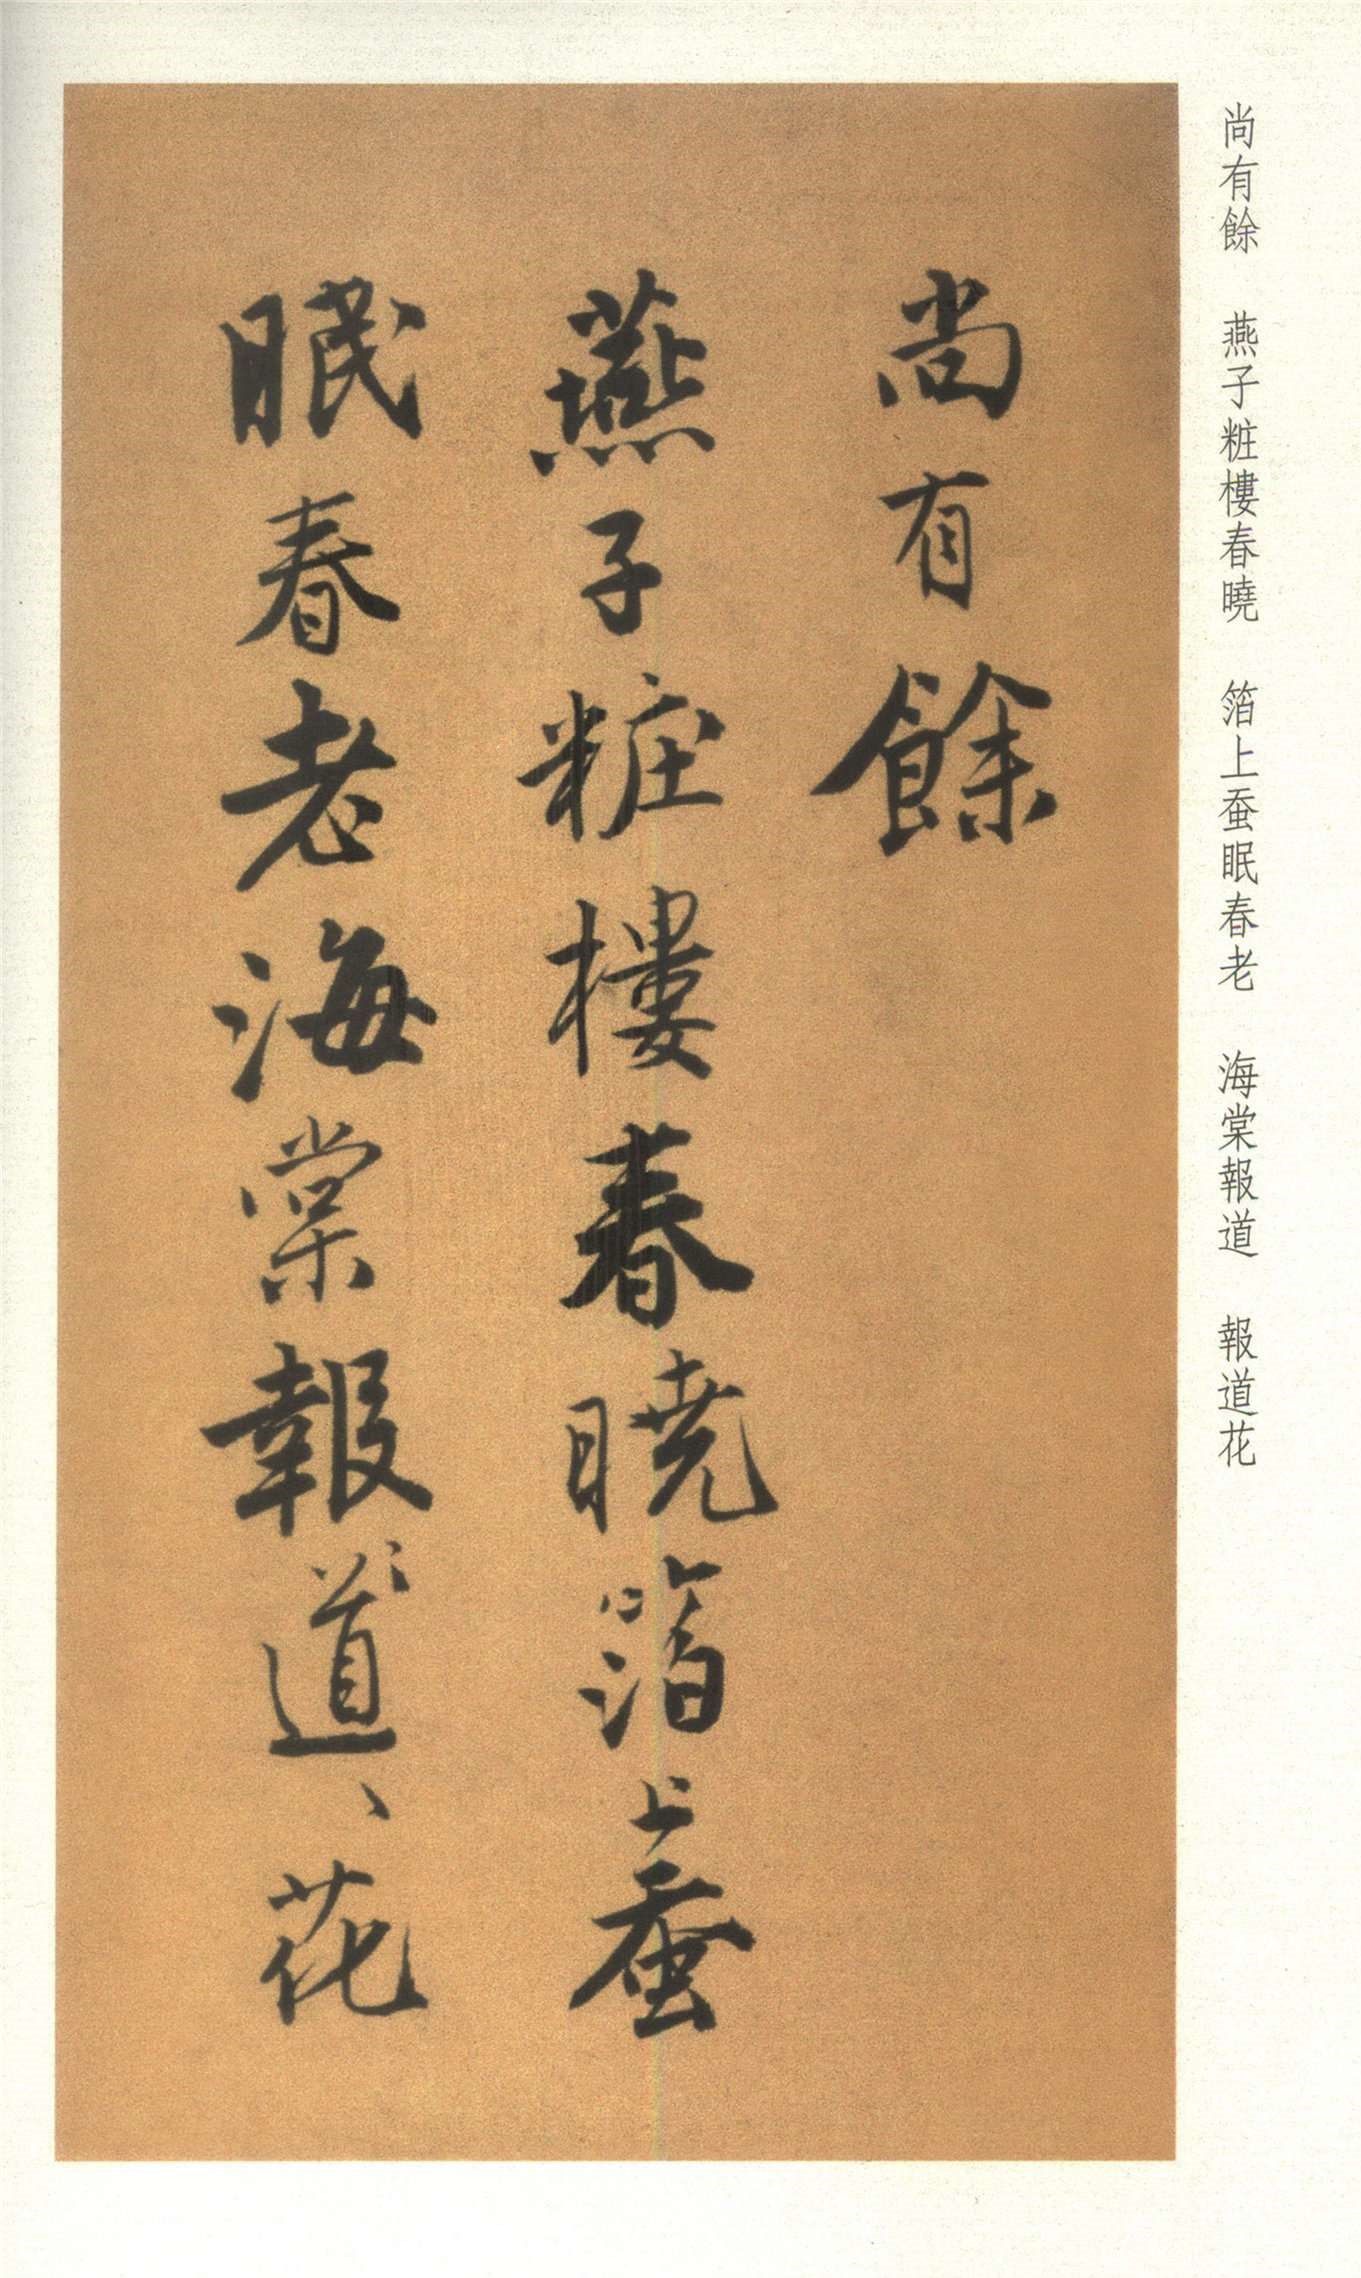 尚有餘　燕子粧樓春曉　箔上蚕眠春老　海棠報道　報道花
尚有餘
燕子粧樓春曉箔上蚕
眠春老海棠報道〻花